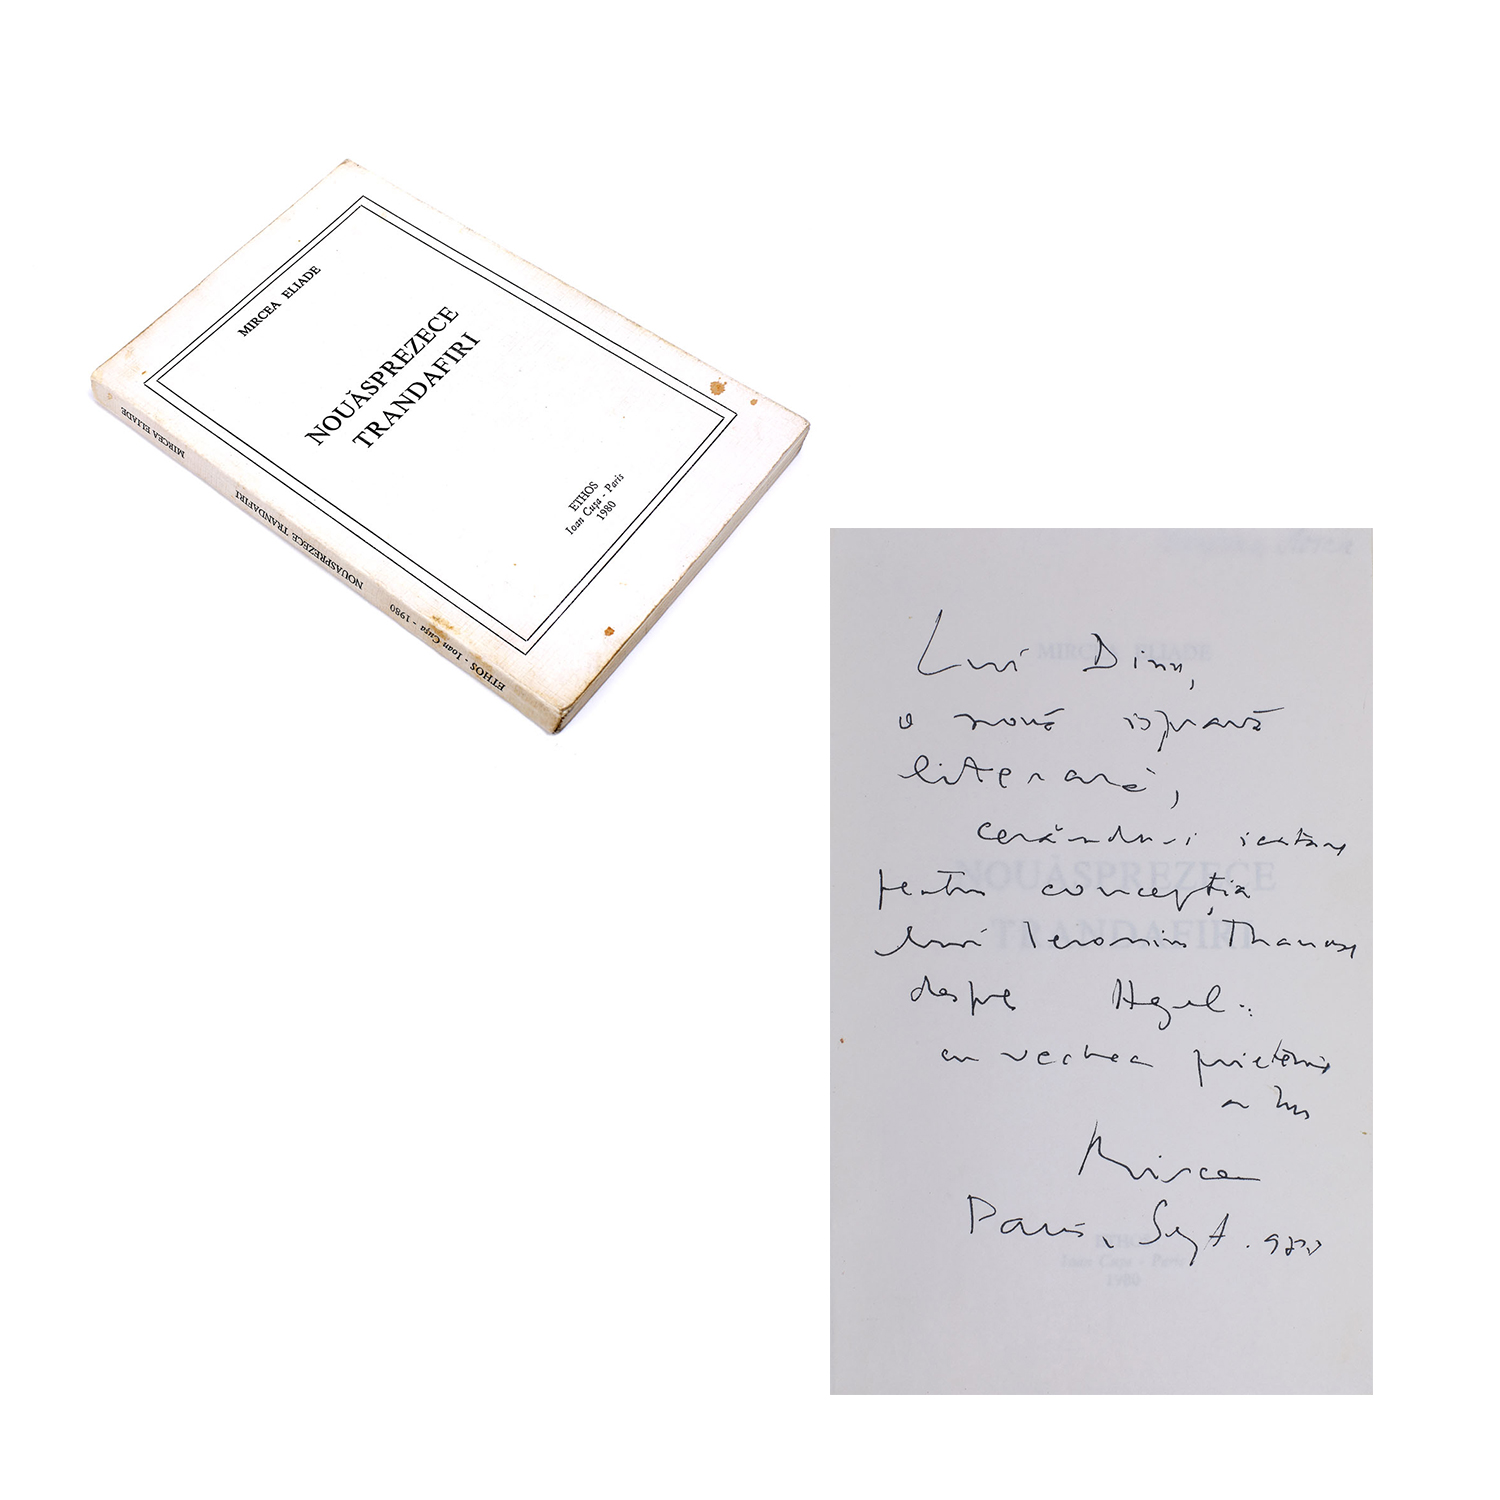 MIRCEA ELIADE
NOUĂSPREZECE
TRANDAFIRI
ETHOS
Ioan Cușa - Paris
1980
MIRCEA ELIADE
NOUĂSPREZECE TRANDAFIRI
ETHOS - Ioan Cușa - 1980
Lui Dinu,
o nouă ispravă
literară,
cerându-i iertare
pentru concepția
lui Ieronim Thanase
despre Hegel..
cu vechea prietenie
a lui
Mircea
Paris, Sept. 980
MIRCEA ELIADE
NOUĂSPREZECE
TRANDAFIRI
ETHOS
Ioan Cușa - Paris
1980